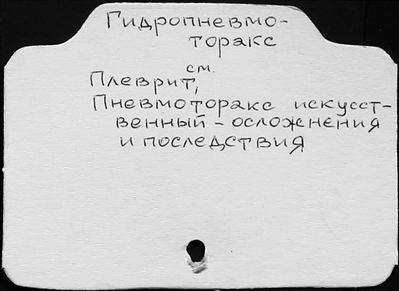 Гидропневмо-
торакс
см.
Плеврит,
Пневмоторакс искусст-
венный - осложнения
и последствия